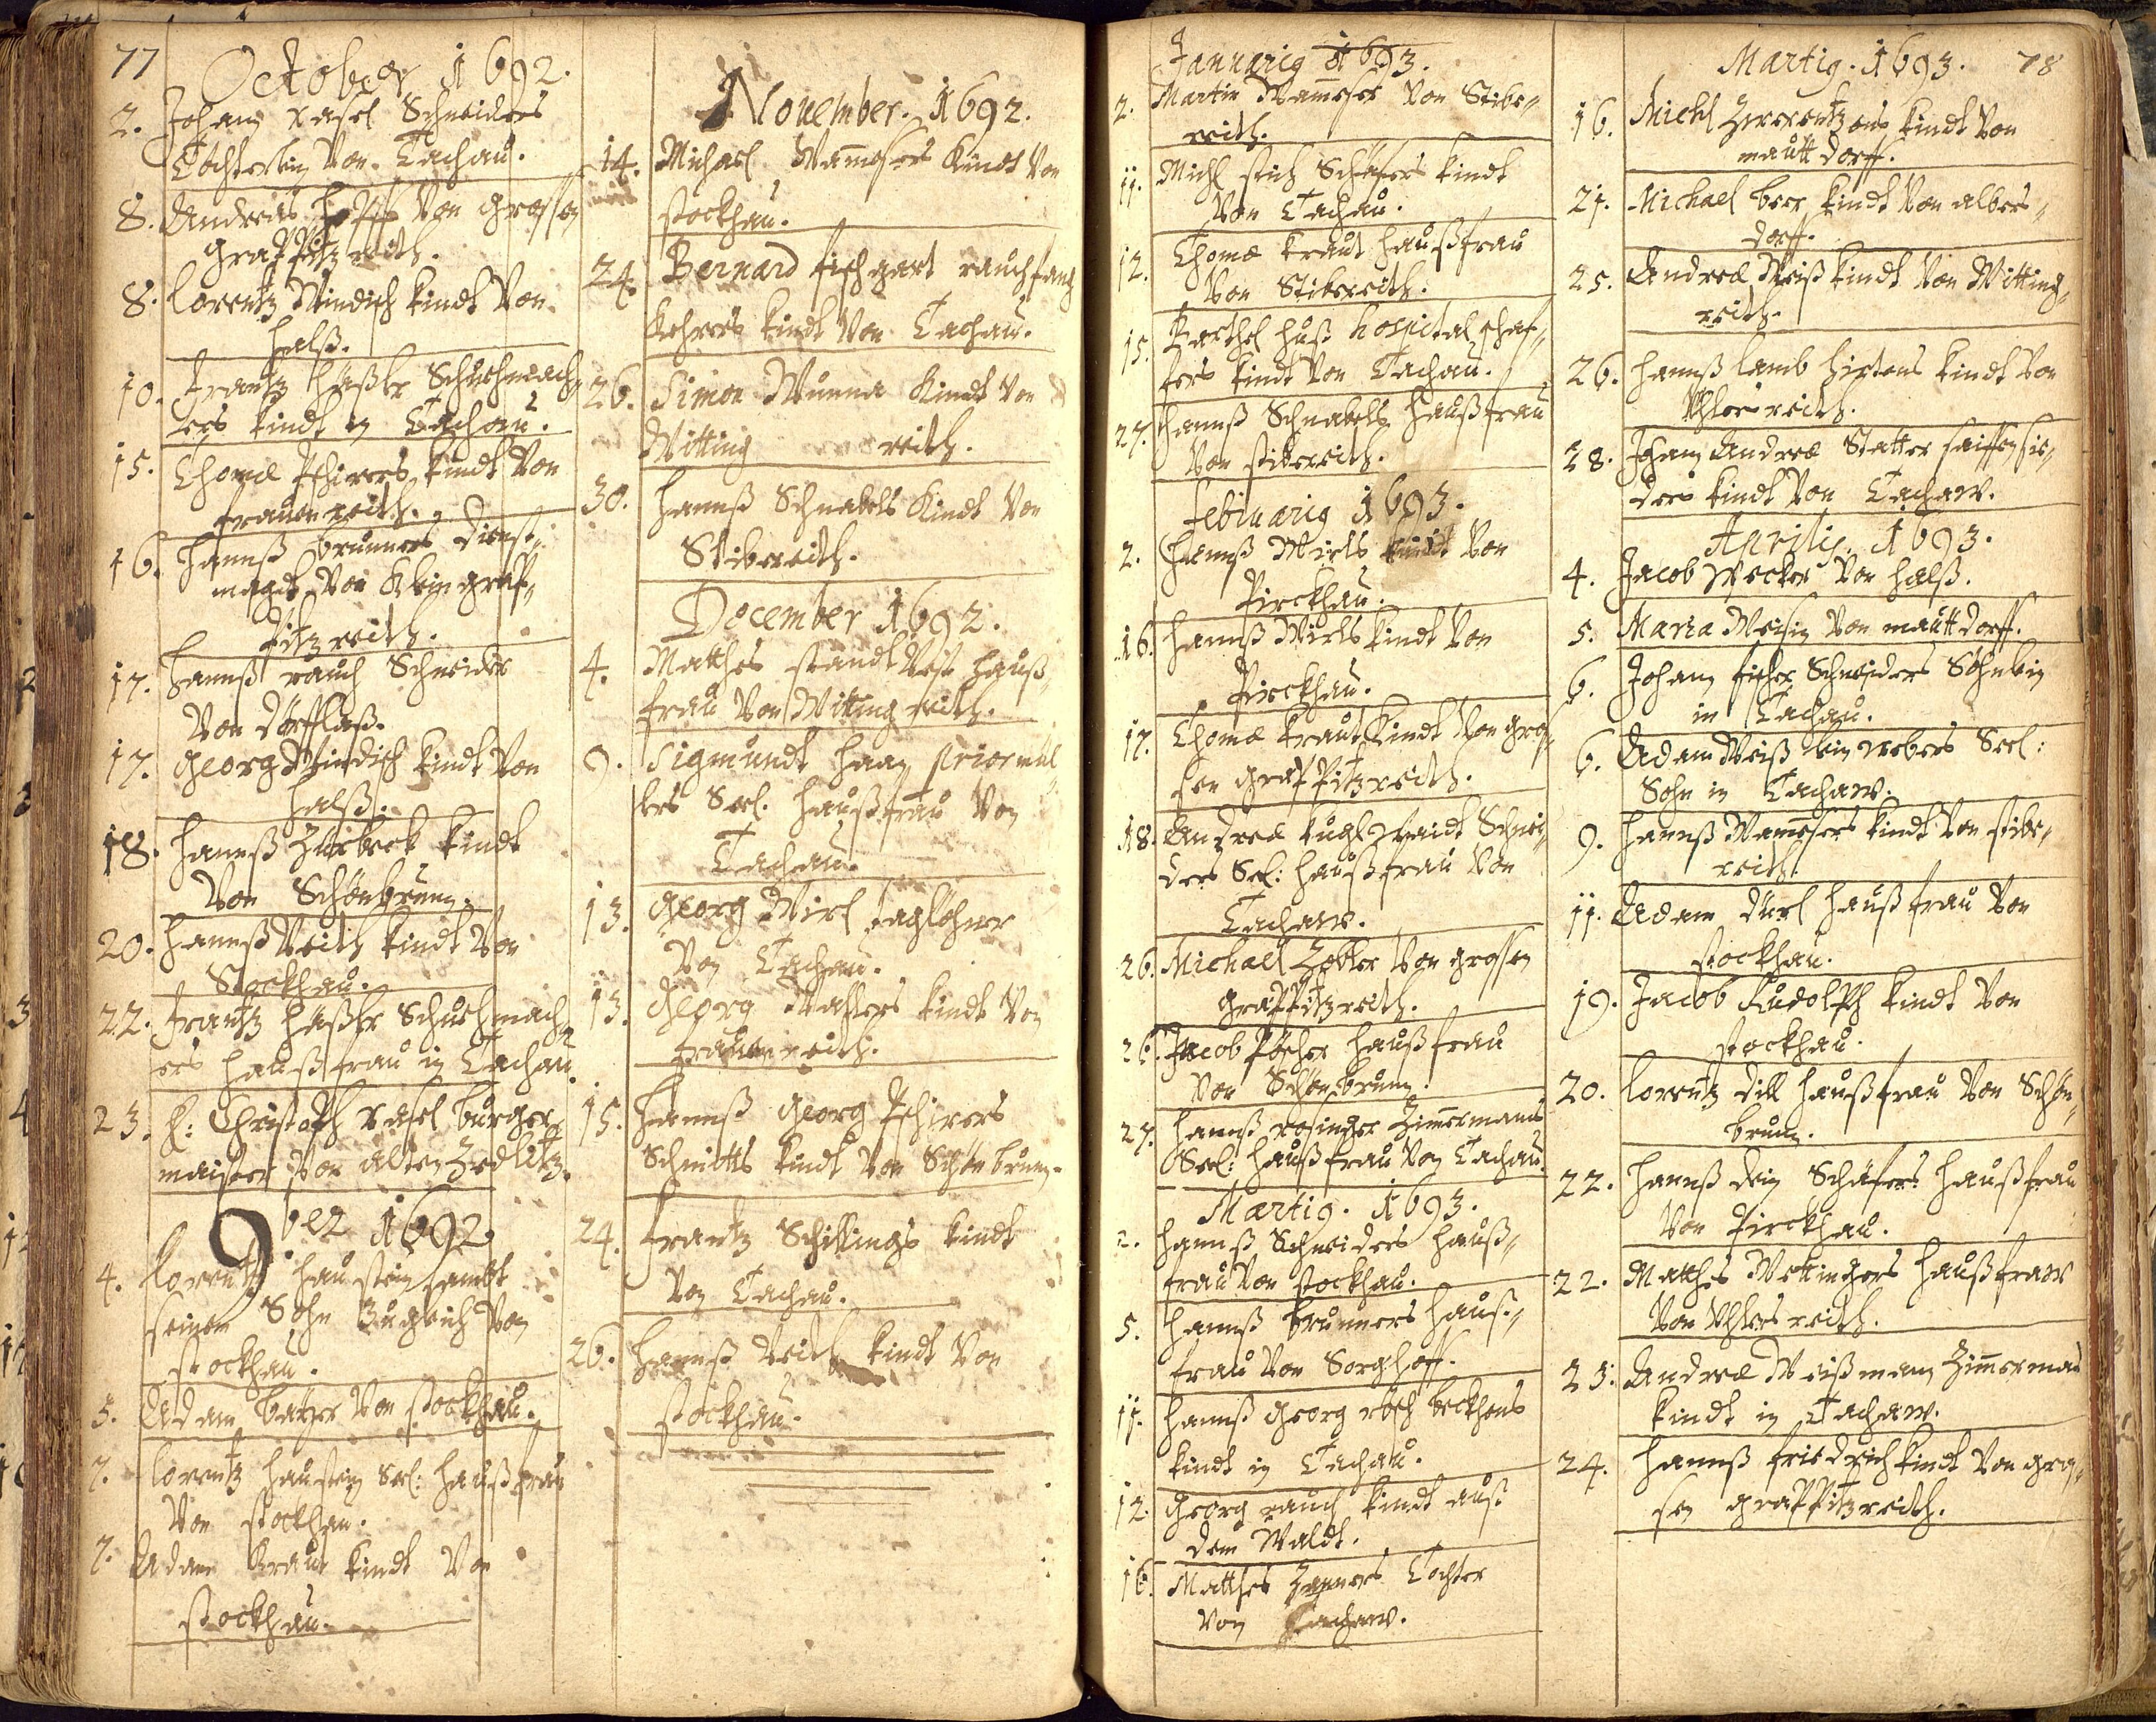 77
October 1692.
2. Johann Rasel Schneiders
Töchterlein Von Tachau.
8. Andreas Hopff Von grossen
grappitzreith.
8. Lorentz Windisch kindt Von
Halß.
10. Frantz Häßler Schuechmach„
ers kindt in Tachau.
15. Thomæ Pschirers kindt Von
frauenreith.
16. Hannß brunners dienst„
magdt Von Klein grap„
pitzreith.
17. Hannß rauch Schneider
Von dörfflaß.
17. Georg Windisch kindt Von
Halß.
18. Hannß Zürbeck kindt
Von Schönbrunn.
20. Hannß Veith kindt Von
Stockhau.
22. Frantz Häßler Schuechmach„
ers haußfrau in Tachau.
23. H: Christoph Rasel burger„
maister Von alten Zedlitz.
9ber 1692.
4. Lorentz Haustein sambt
seinem Sohn Zugleich Von
stockhau.
5. Adam Bayer Von stockhau.
7. Lorentz Haustein Seel: haußfrau
Von stockhau.
7. Adam Kraus kindt Von
stockhau.
November. 1692.
14. Michael Mammesers Kindt Von
stockhau.
24. Bernard fischgart rauchfang
kehrers kindt Von Tachau.
26. Simon Wunna Kindt Von
Witting reith.
30. Hannß Schnabels Kindt Von
Stibereith.
December 1692.
4. Matthes standt Vest hauß„
frau Von Witting reith.
9. Sigmundt Haan priormül„
lers Seel. haußfrau Von
Tachau.
13. Georg Mirl taglöhner
Von Tachau.
13. Georg Mahlers kindt Von
frauenreith.
15. Hannß Georg Pschirers
Schmidts kindt Von Schönbrunn.
24. Frantz Schillings kindt
Von Tachau.
26. Hannß Veith kindt Von
stockhau.
Januarij 1693.
2. Martin Mammeser Von Stibe„
reith.
11. Michl stich Schäfers kindt
Von Tachau.
12. Thomæ Kraus haußfrau
Von Stibereith.
15. Barthel Huß hospital schaf„
fers kindt Von Tachau.
27. Hannß Schnabels haußfrau
Von stibereith.
Februarij 1693.
2. Hannß Mirls kindt Von
Pirckhau.
16. Hannß Mirls kindt Von
Pirckhau.
17. Thomæ Kraus kindt Von gros„
sen grappitzreith.
18. Andreæ Kugl Schnei„
ders Sel: haußfrau Von
Tachaw.
26. Michael Zobler Von grossen
grappitzreith.
26. Jacob Pöcher haußfrau
Von Schönbrunn.
27. Hannß rosinger Zimmermanns
Seel: haußfrau Von Tachau.
Martij. 1693.
2. Hannß Schneiders hauß„
frau Von stockhau.
5. Hannß brunners hauß„
frau Von Sorghoff.
11. Hannß Georg rösch beckhens
kindt in Tachau.
12. Georg rauch kindt auß
dem Waldt.
16. Matthes Zanners Tochter
Von Tachaw.
Martij. 1693. 78
16. Michl kindt Von
mautt dorff.
21. Michael beer kindt Von albers„
dorff.
25. Andreæ Weiß kindt Von Witting„
reith.
26. Hannß lamb hirtens kindt Von
Uhlersreith.
28. Johann Andreæ Statter saiffensie„
ders kindt Von Tachaw.
Aprilis 1693.
4. Jacob Wecker Von Halß.
5. Maria Meisin Von mautt dorff.
6. Johann ficker Schneiders Söhnlein
in Tachau.
6. Adam Weiß leinwebers Seel:
Sohn in Tachaw.
9. Hannß Mammesers kindt Von stibe„
reith.
11. Adam dürl haußfrau Von
stockhau.
19. Jacob Rudolph kindt Von
stockhau.
20. Lorentz dill haußfrau Von Schön„
brunn.
22. Hannß dein Schäfers haußfrau
Von Pirckhau.
22. Matthes Mettingers haußfraw
Von Uhlersreith.
23. Andreæ Weißmann Zimmerman
kindt in Tachaw.
24. Hannß friedrich kindt Von gros„
sen grappitzreith.